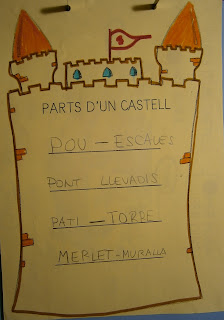 PARTS D'UN CASTELL
POU - ESCALES
PONT LLEVADIS
PATI - TORRE
MERLET - MURALLA